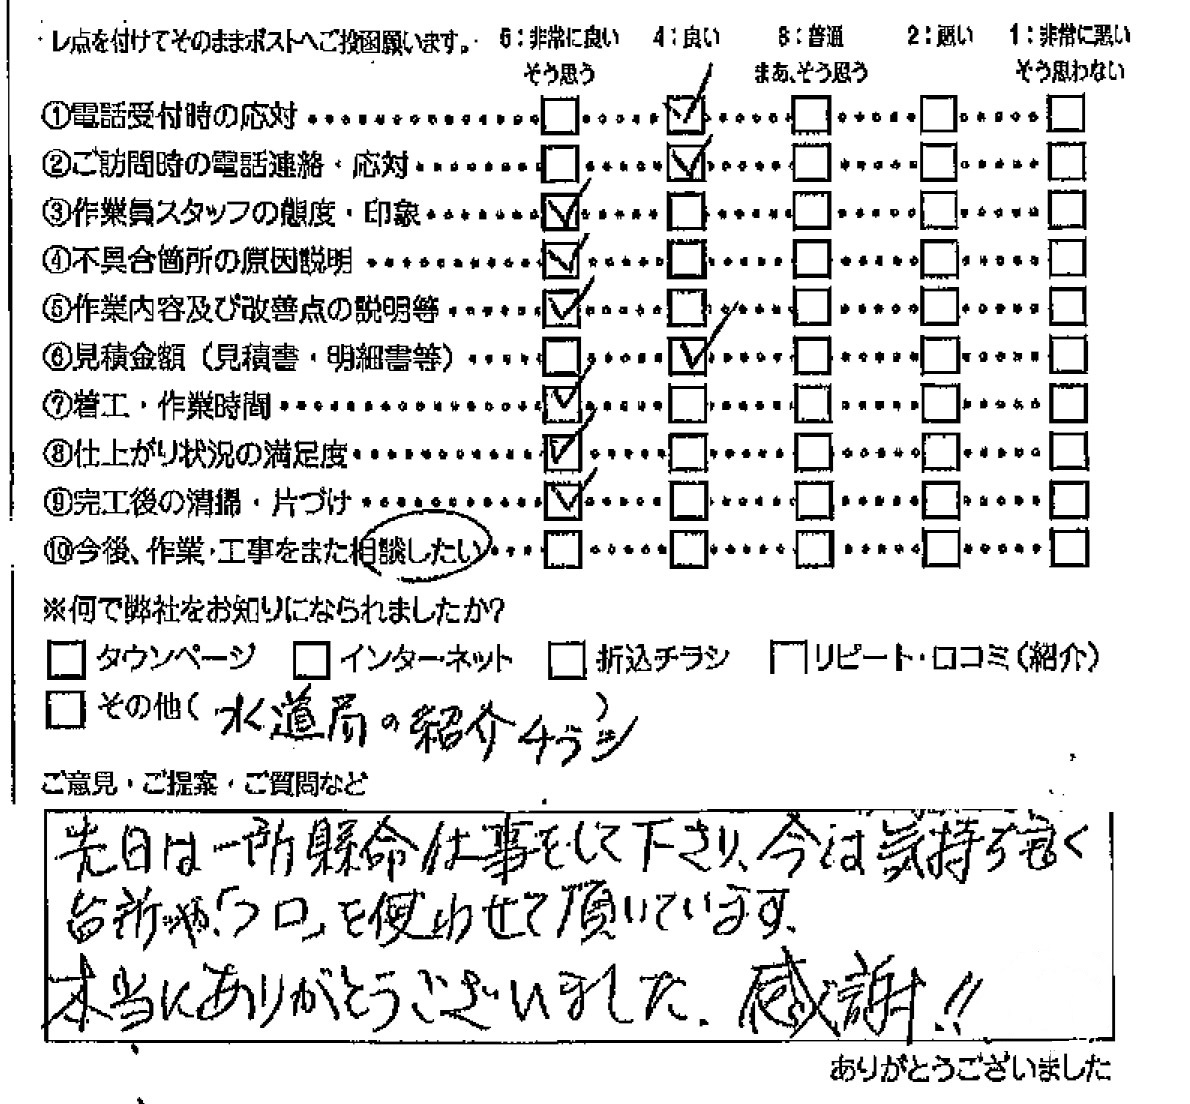 レ点を付けてそのままポストへご投函願います。 5:非常に良い 4:良い 3:普通 2:悪い 1:非常に悪い
そう思う まあ、そう思う そう思わない
①電話受付時の応対
②ご訪問時の電話連絡・応対
③作業員スタッフの態度・印象
④不具合箇所の原因説明
⑤作業内容及び改善点の説明等
⑥見積金額(見積書・明細書等)
⑦着工・作業時間
⑧仕上がり状況の満足度
⑨完工後の清掃・片づけ
⑩今後、作業・工事をまた相談したい
※何で弊社をお知りになられましたか?
タウンページ インターネット 折込チラシ リピート・口コミ(紹介)
その他( 水道局の紹介チラシ )
ご意見・ご提案・ご質問など
先日は一所懸命仕事をして下さり、今は気持ち良く
台所や「フロ」を使わせて頂いています。
本当にありがとうございました。感謝!!
ありがとうございました